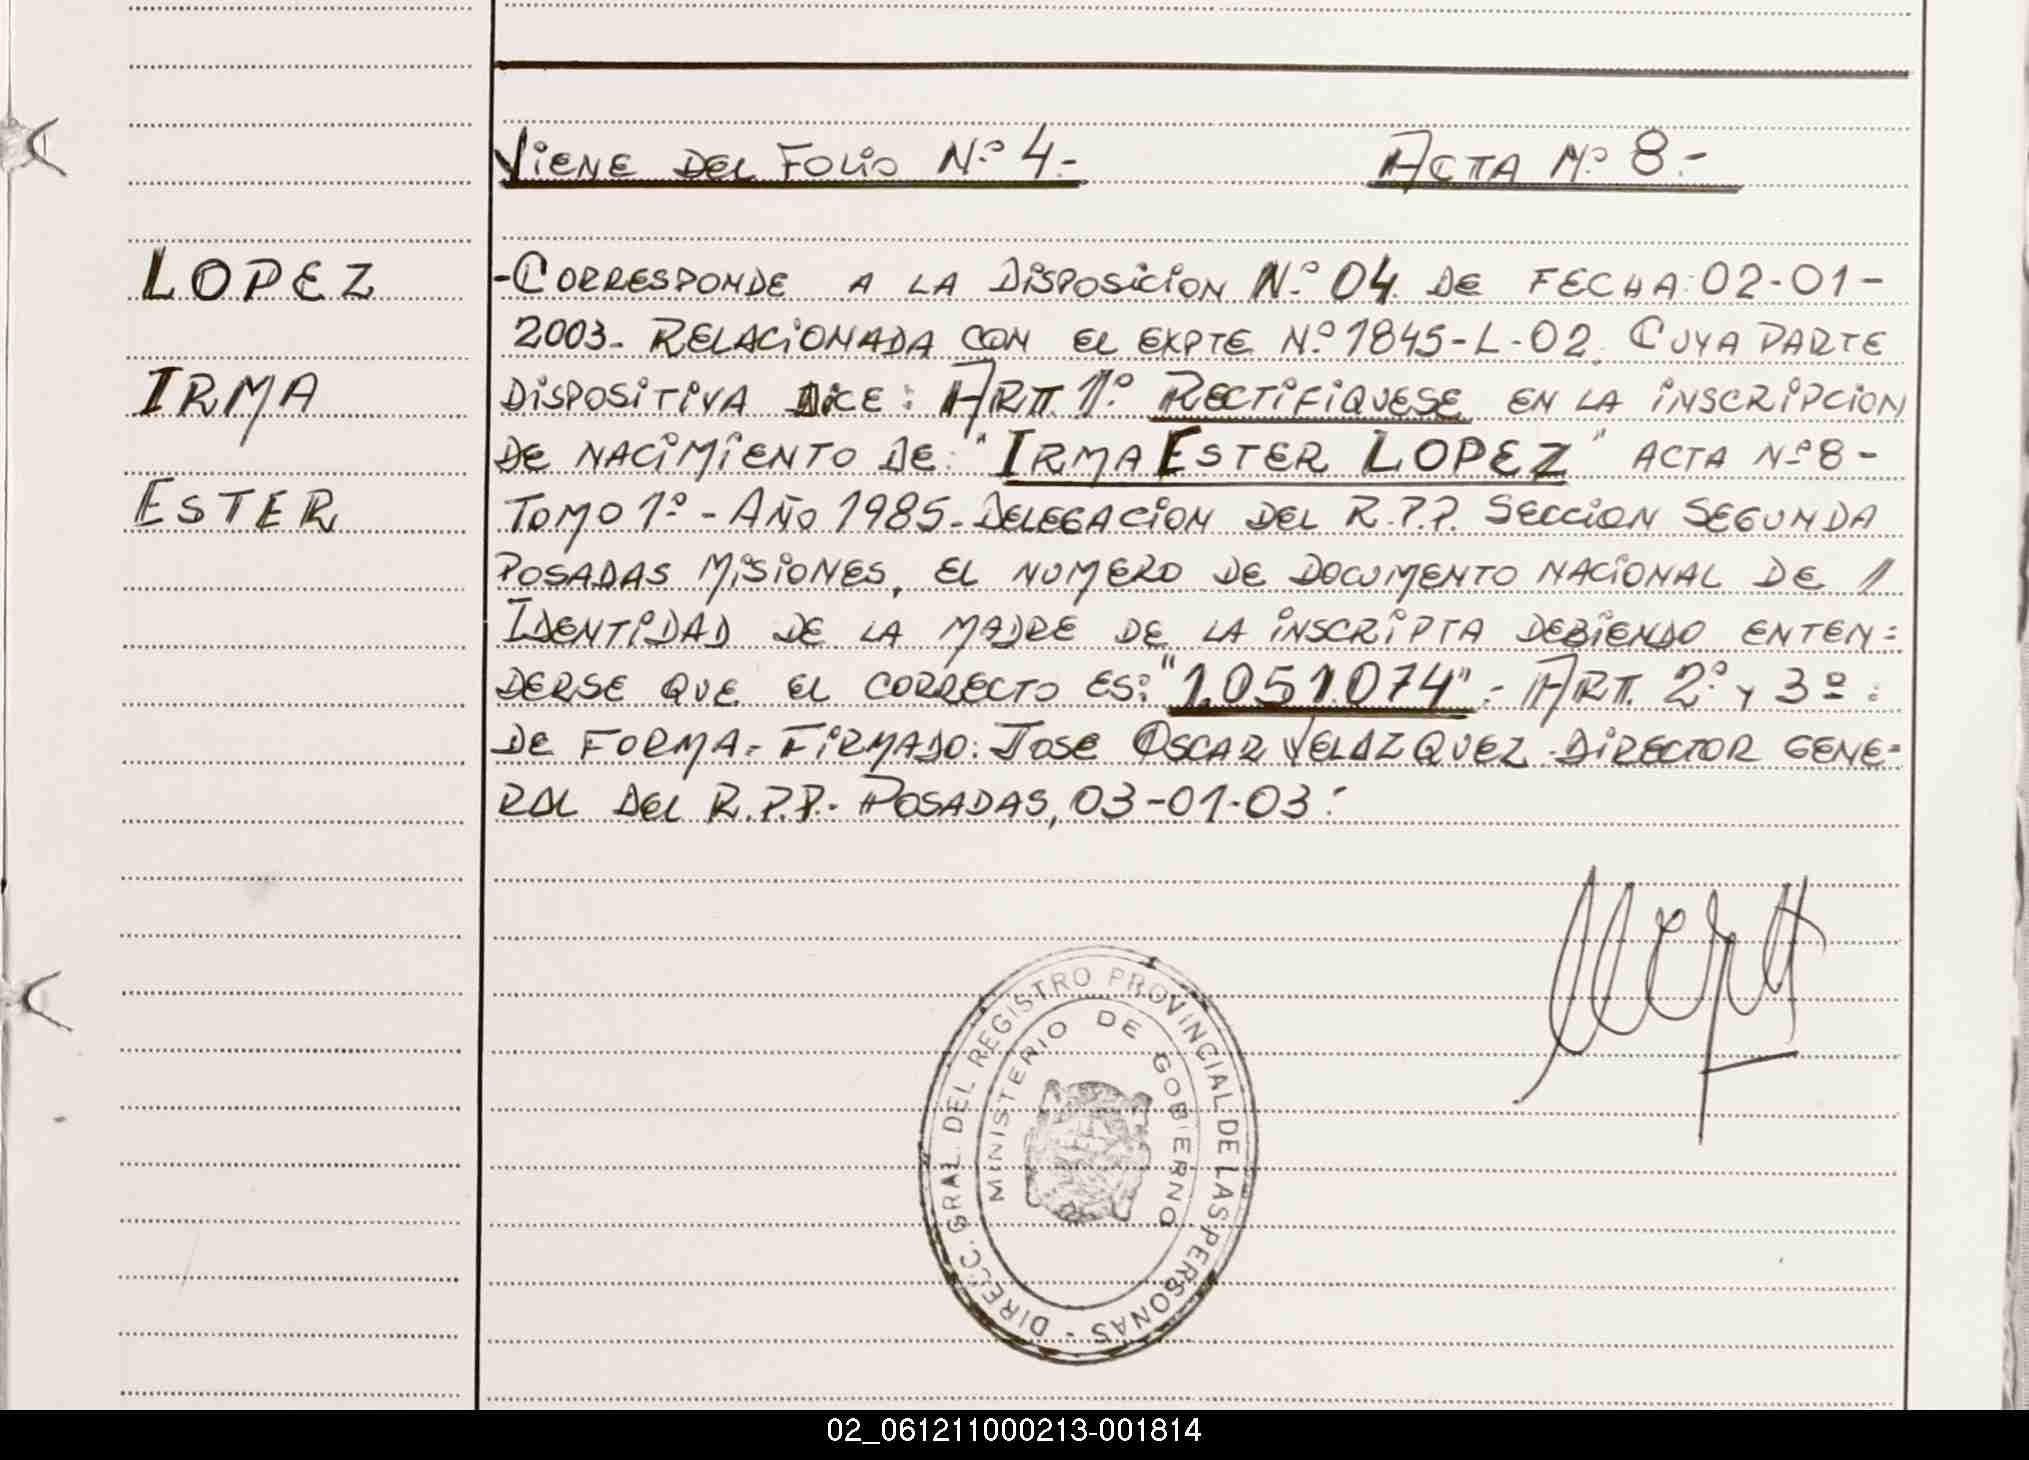 VIENE DEL FOLIO N.º 4.-
ACTA Nº 8.-
LOPEZ
IRMA
ESTER
-CORRESPONDE A LA DISPOSICION N.º 04. DE FECHA: 02-01-
2003- RELACIONADA CON EL EXPTE N.º 1845-L-02. CUYA PARTE
DISPOSITIVA DICE: ART. 1º RECTIFIQUESE EN LA INSCRIPCION
DE NACIMIENTO DE: "IRMA ESTER LOPEZ" ACTA Nº 8-
TOMO 1º - AÑO 1985- DELEGACION DEL R.P.P. SECCION SEGUNDA
POSADAS MISIONES, EL NUMERO DE DOCUMENTO NACIONAL DE /
IDENTIDAD DE LA MADRE DE LA INSCRIPTA DEBIENDO ENTEN=
DERSE QUE EL CORRECTO ES: "1.051.074".- ART. 2º Y 3º:
DE FORMA.- FIRMADO: JOSE OSCAR VELAZQUEZ-DIRECTOR GENE=
RAL DEL R.P.P.- POSADAS, 03-01-03:
DIRECC. GRAL. DEL REGISTRO PROVINCIAL DE LAS PERSONAS -
MINISTERIO DE GOBIERNO
02_061211000213-001814